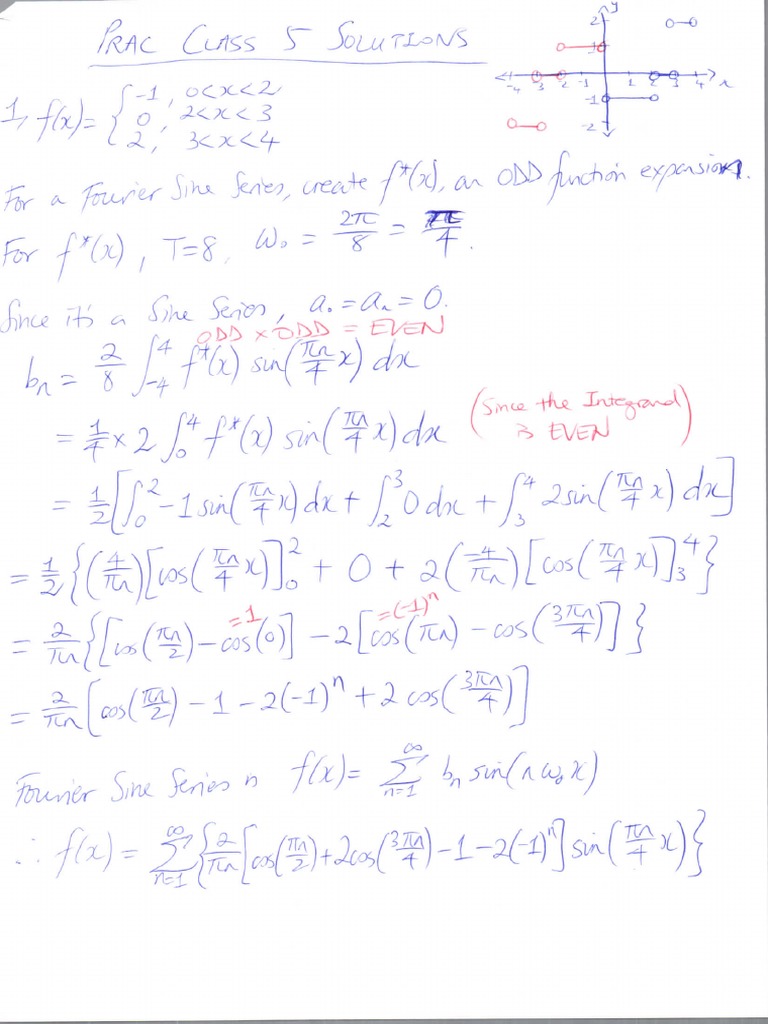 PRAC CLASS 5 SOLUTIONS
y
2
1
-4 -3 -2 -1 1 2 3 4 x
-1
-2
1, f(x) = { -1, 0<x<2
0, 2<x<3
2, 3<x<4
For a Fourier Sine Series, create f*(x), an ODD function expansion.
For f*(x), T=8, ω₀ = 2π/8 = π/4.
Since it's a Sine Series, a₀ = aₙ = 0.
ODD × ODD = EVEN
bₙ = 2/8 ∫₋₄⁴ f*(x) sin(πn/4 x) dx
= 1/4 × 2 ∫₀⁴ f*(x) sin(πn/4 x) dx (Since the Integrand is EVEN)
= 1/2 [∫₀² -1 sin(πn/4 x) dx + ∫₂³ 0 dx + ∫₃⁴ 2 sin(πn/4 x) dx]
= 1/2 {(4/πn)[cos(πn/4 x)]₀² + 0 + 2(-4/πn)[cos(πn/4 x)]₃⁴}
=1 =(-1)ⁿ
= 2/πn {[cos(πn/2) - cos(0)] - 2[cos(πn) - cos(3πn/4)]}
= 2/πn [cos(πn/2) - 1 - 2(-1)ⁿ + 2 cos(3πn/4)]
Fourier Sine Series is f(x) = ∑ₙ₌₁^∞ bₙ sin(n ω₀ x)
∴ f(x) = ∑ₙ₌₁^∞ {2/πn [cos(πn/2) + 2cos(3πn/4) - 1 - 2(-1)ⁿ] sin(πn/4 x)}